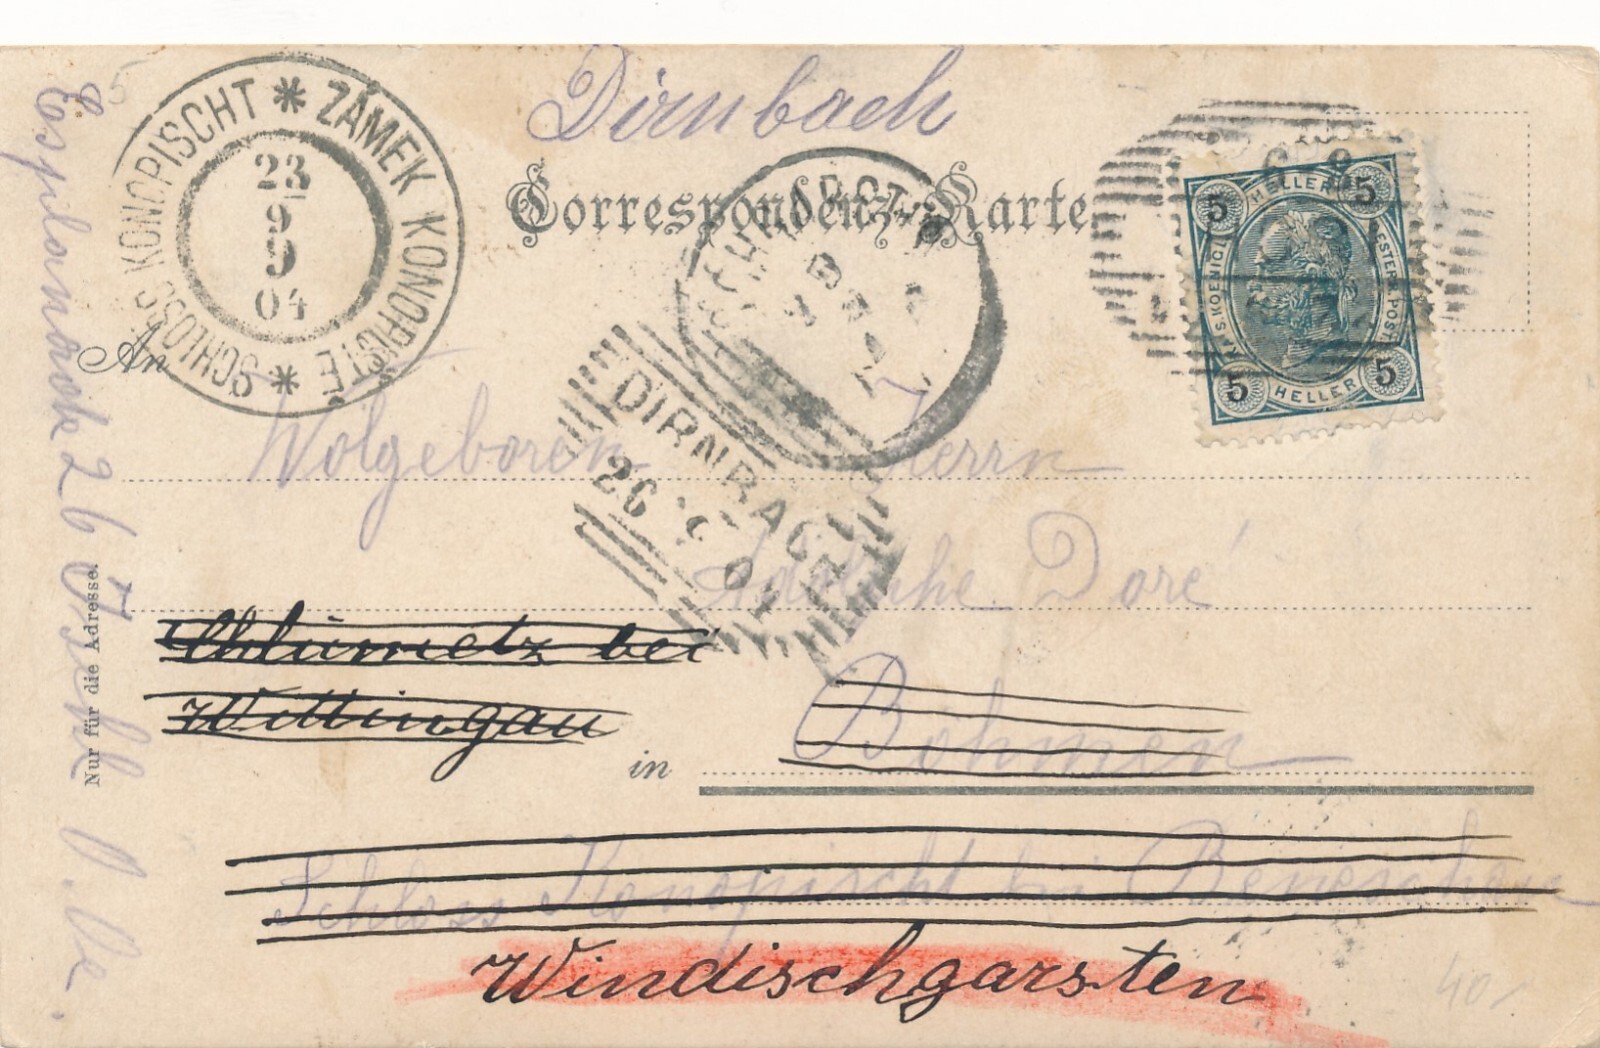 Dirnbach
Correspondenz-Karte
SCHLOSS KONOPISCHT * ZÁMEK KONOPIŠTĚ *
23
9
9
04
5 HELLER 5
KAIS. KOENIGL. OESTERR. POST
5 HELLER 5
DIRNBACH
26 9 04
An
Wolgeboren Herrn
Adolphe Doré
Chlumetz bei
Wittingau
in Böhmen
Schloss Konopischt bei Beneschau
Windischgarsten
Nur für die Adresse.
Esplanade 26 Ischl O. Oe.
40.-